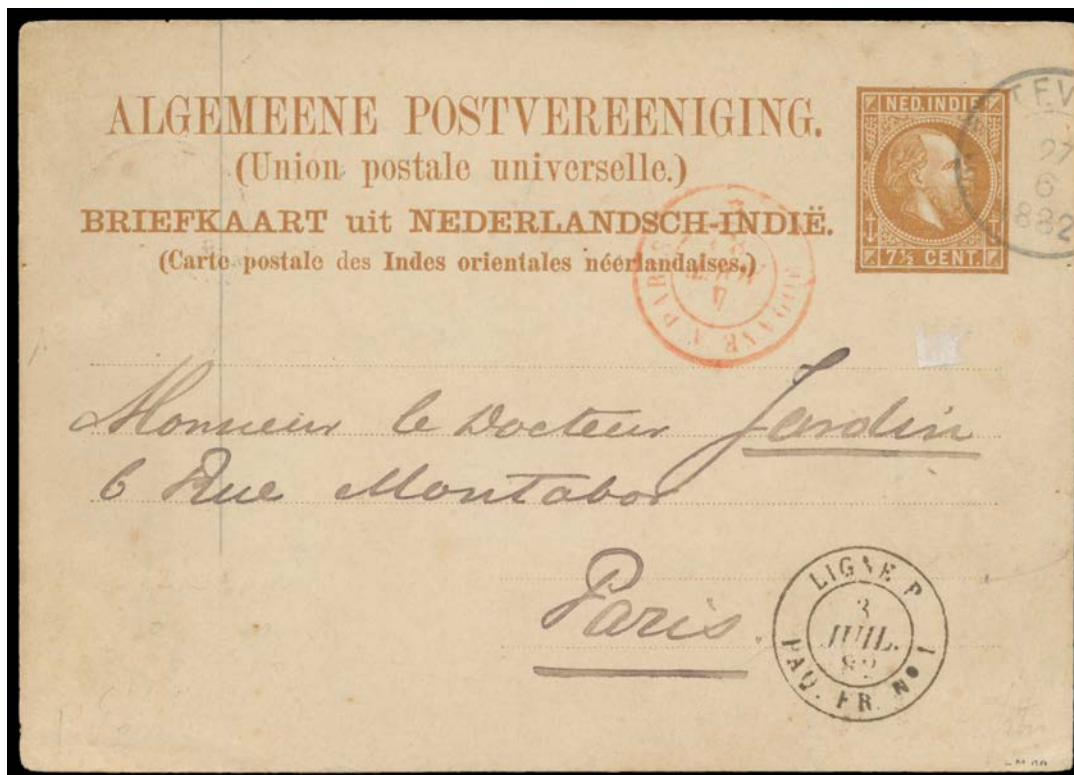 ALGEMEENE POSTVEREENIGING.
(Union postale universelle.)
BRIEFKAART uit NEDERLANDSCH-INDIË.
(Carte postale des Indes orientales néerlandaises.)
NED. INDIE
7½ CENT.
27
6
1882
MODANE À PARIS
Monsieur le Docteur Jardin
6 Rue Montabor
Paris.
LIGNE P
3
JUIL.
82
PAQ. FR. No 1